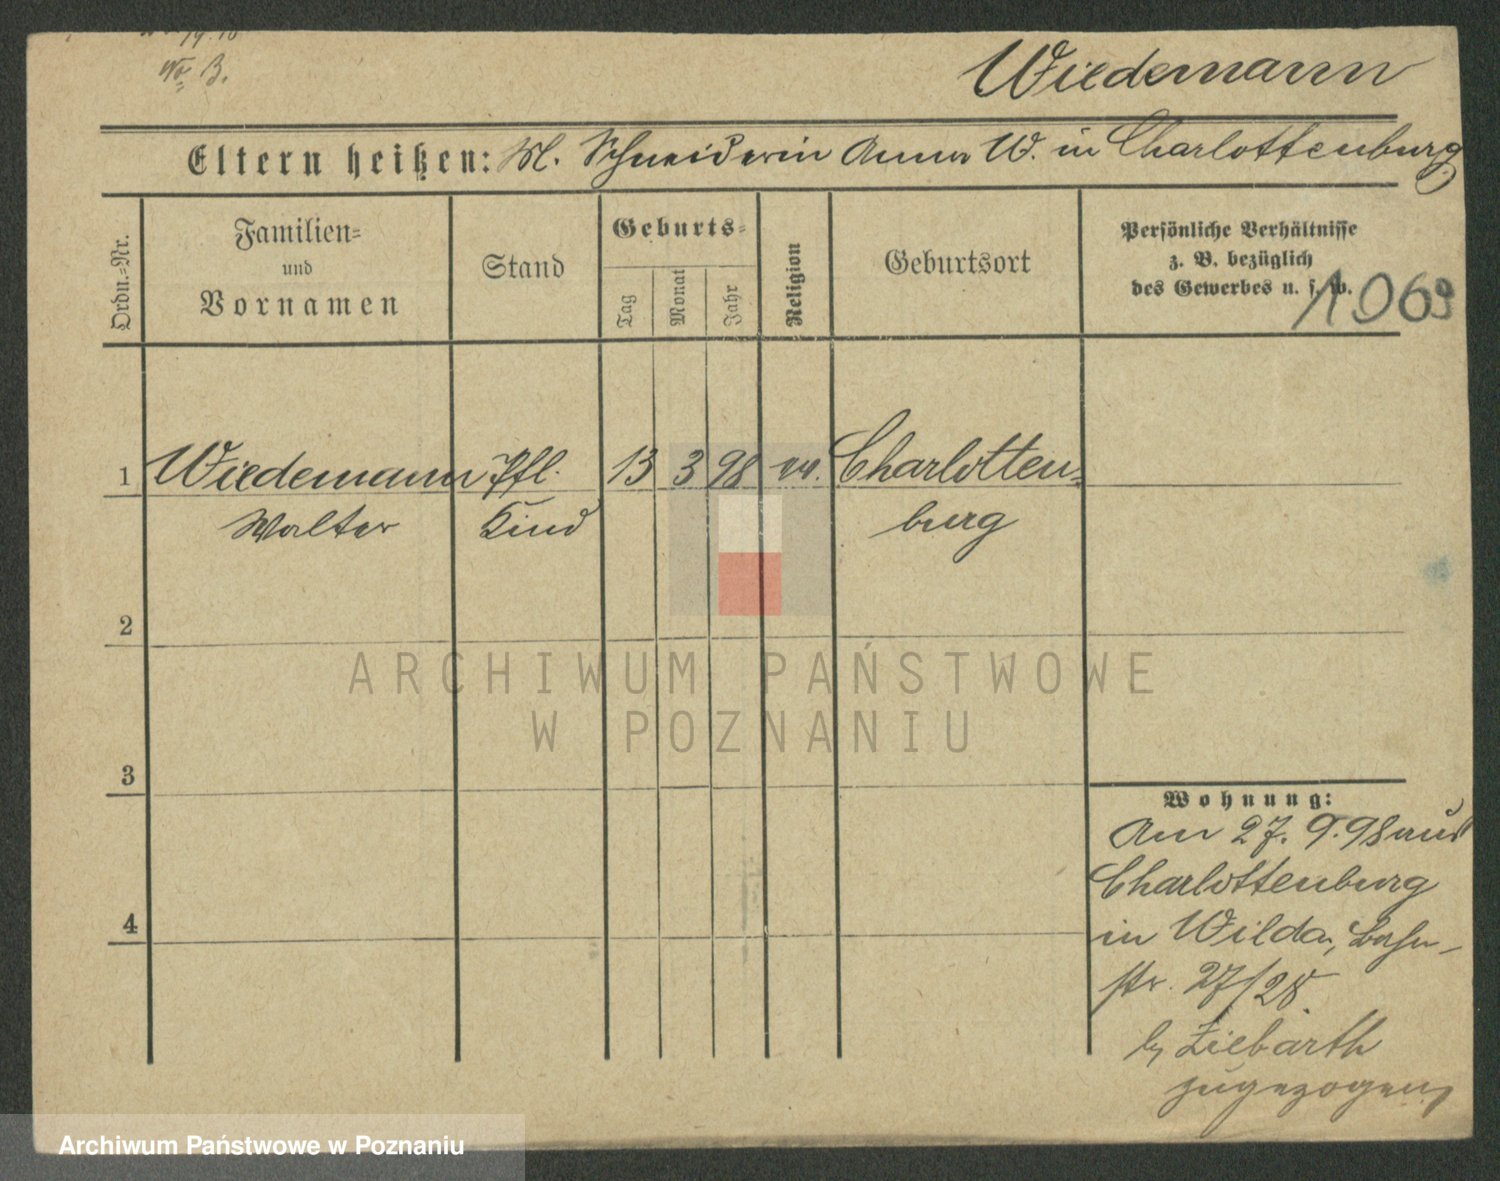 No B.
Wiedemann
Eltern heißen: M. Schneiderin Anna W. in Charlottenburg
Ordn.-Nr.
Familien-
und
Vornamen
Stand
Geburts-
Tag
Monat
Jahr
Religion
Geburtsort
Persönliche Verhältnisse
z. B. bezüglich
des Gewerbes u. s. w.
1069
1 Wiedemann Pfl. 13 3 98 ev. Charlotten-
Walter Kind burg
2
3
4
Wohnung:
Am 27. 9. 98 aus
Charlottenburg
in Wilda, Bahn-
str. 27/28
b/ Ziebarth
zugezogen
ARCHIWUM PAŃSTWOWE
W POZNANIU
Archiwum Państwowe w Poznaniu